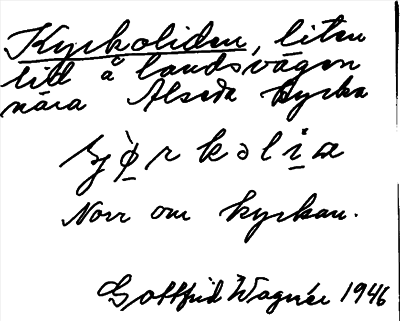 Kyrkoliden, liten
lid å landsvägen
nära Alseda kyrka
Norr om kyrkan.
Gottfrid Wagnér 1946